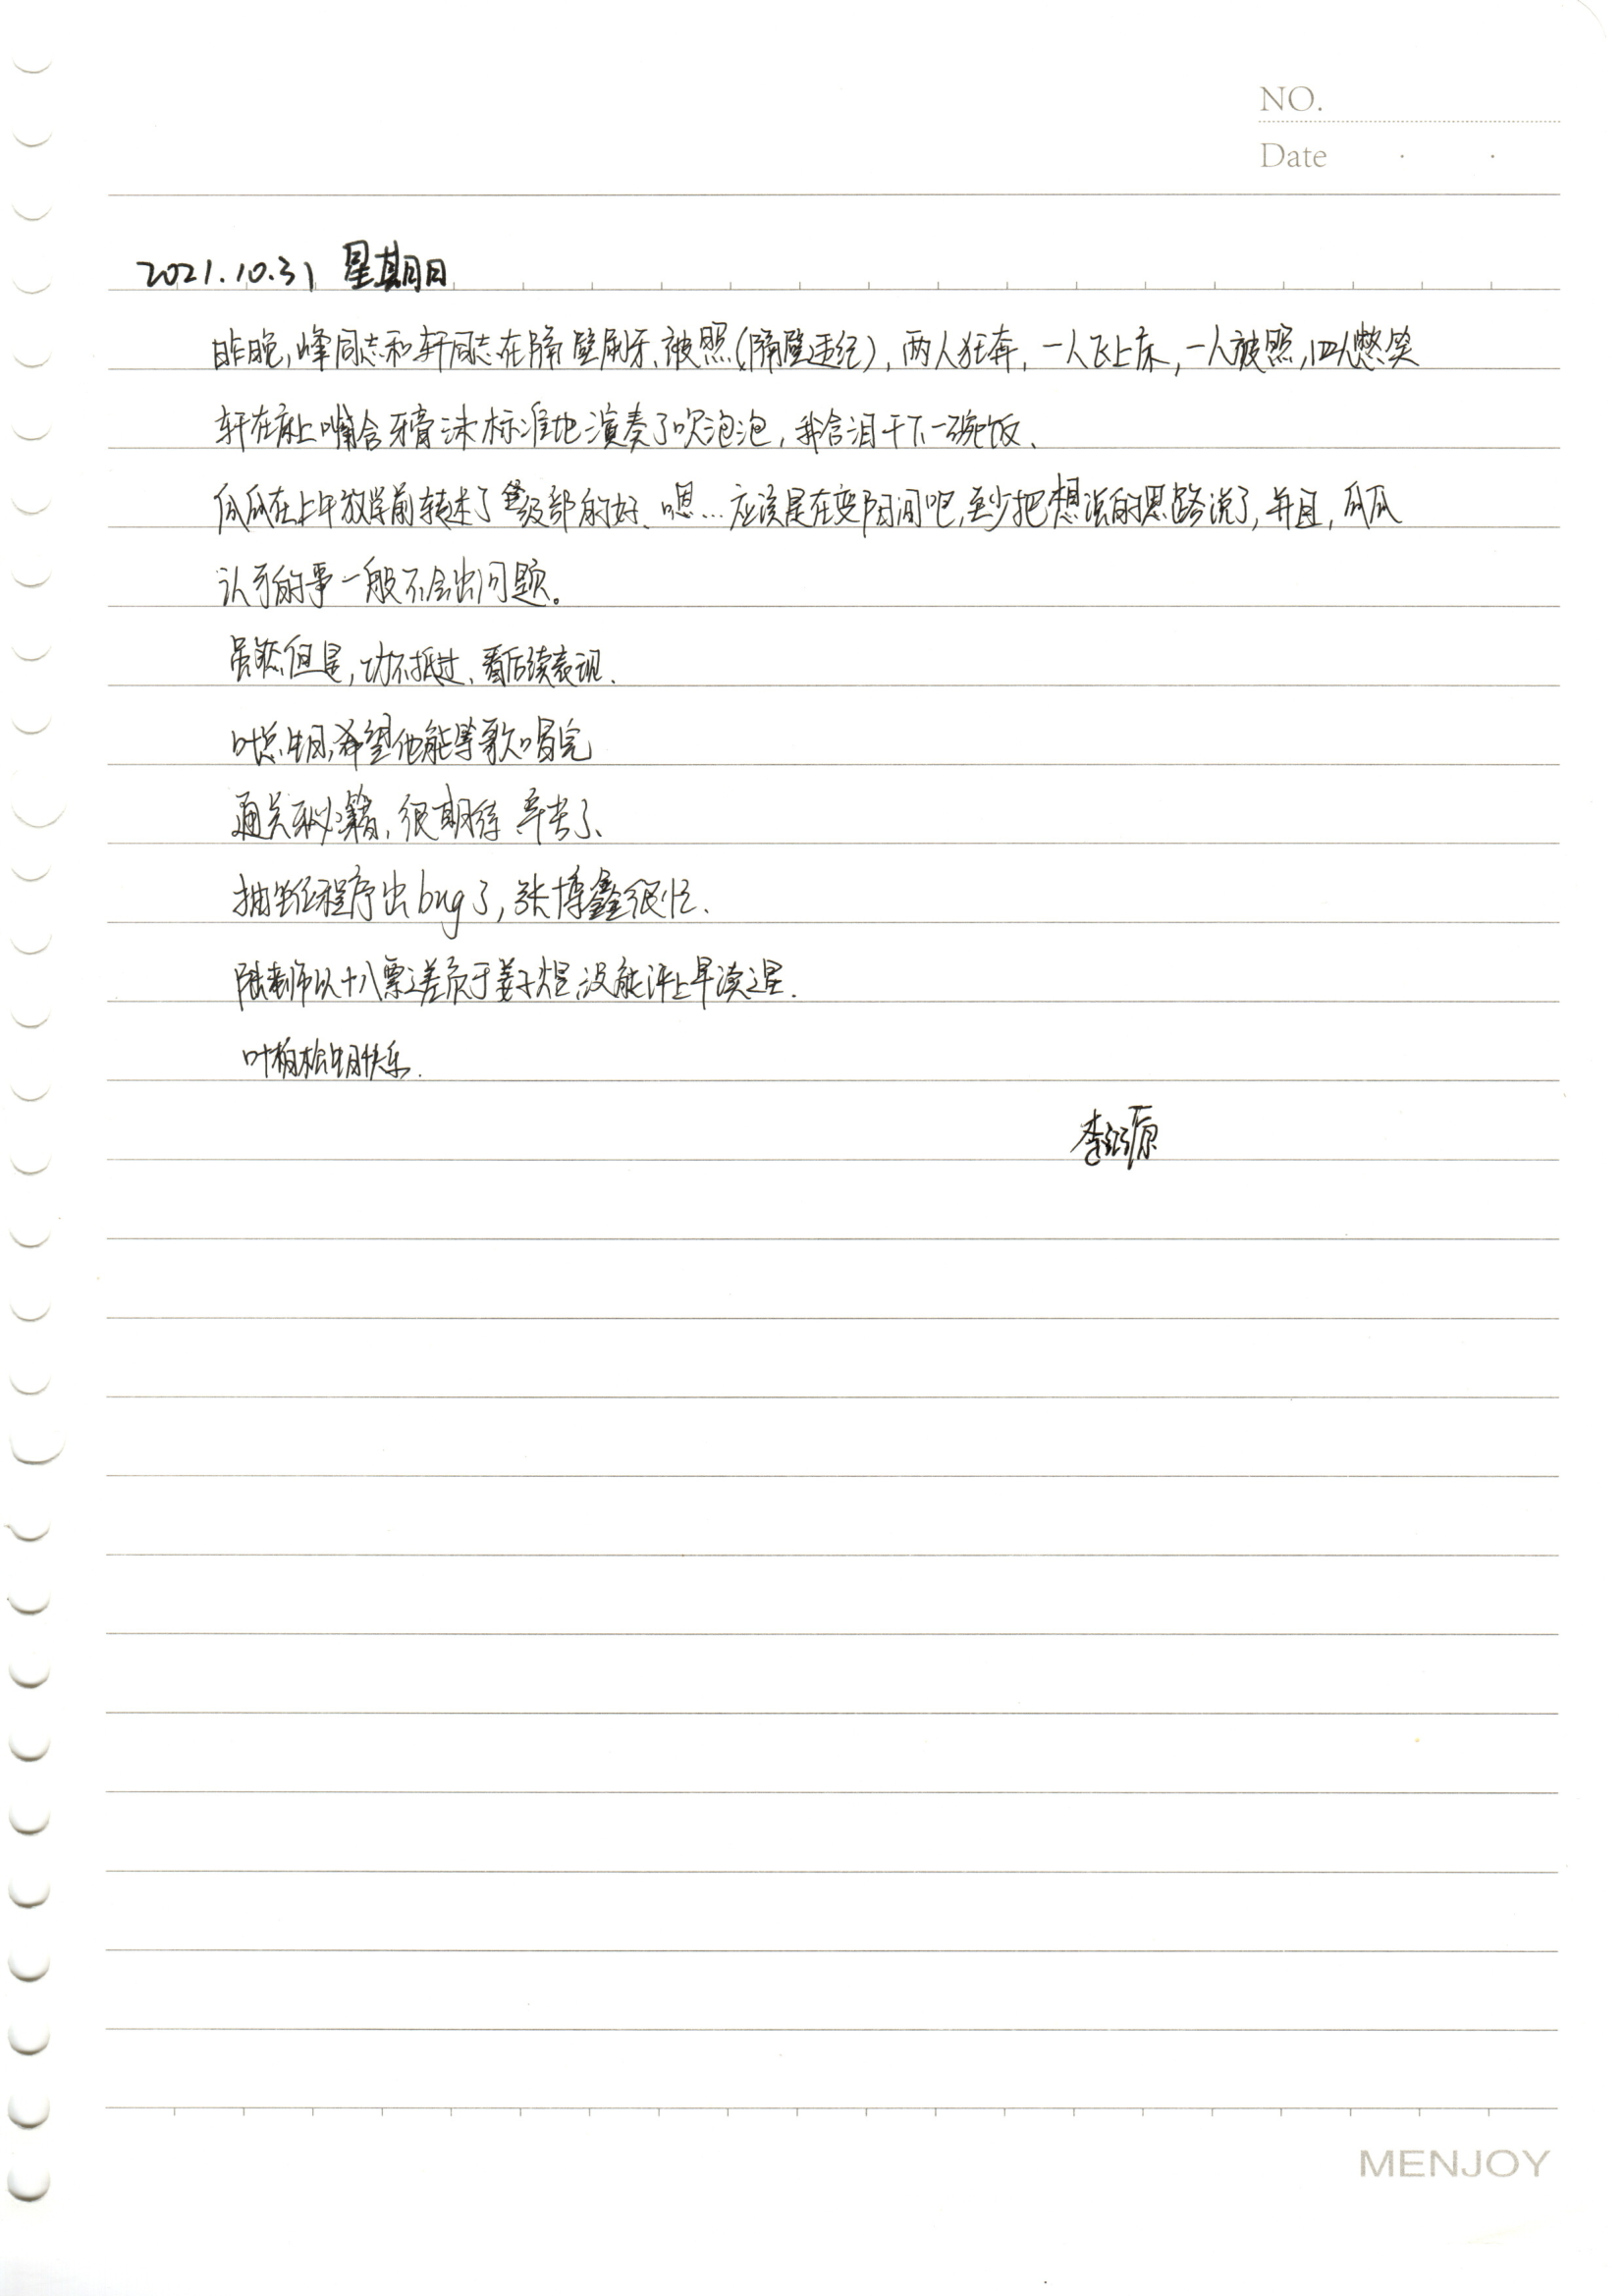 NO.
Date
2021.10.31 星期日
昨晚,峰同志和轩同志在隔壁刷牙、被照(隔壁违纪),两人狂奔,一人飞上床,一人被照,四人憋笑
轩在床上嘴含牙膏沫标准地演奏了吹泡泡,我含泪干下一碗饭、
瓜瓜在上午放学前转述了级部的好、嗯…应该是在变阳间吧,至少把想法的思路说了,并且,瓜瓜
认可的事一般不会出问题。
虽然但是,功不抵过、看后续表现、
叶总生日,希望他能等歌唱完
通关秘籍,很期待 辛苦了、
抽背程序出bug了,张博鑫很忙、
陆老师以十八票之差负于姜子煜,没能评上早读之星.
叶柏松生日快乐.
李源
MENJOY